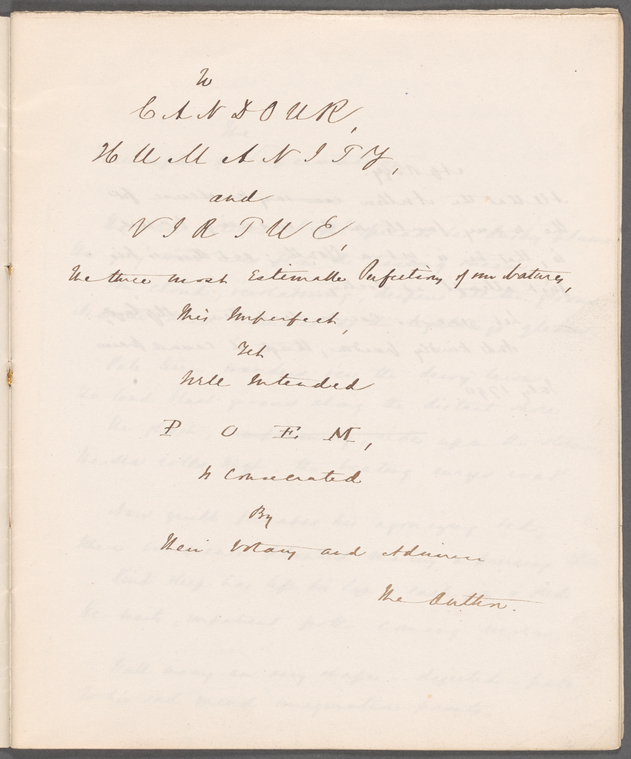 To
CANDOUR,
HUMANITY,
and
VIRTUE,
The three most Estimable Perfections of our Natures,
This Imperfect,
Yet
Well Intended
POEM,
Is Consecrated
By
Their Votary and Admirer
The Author.